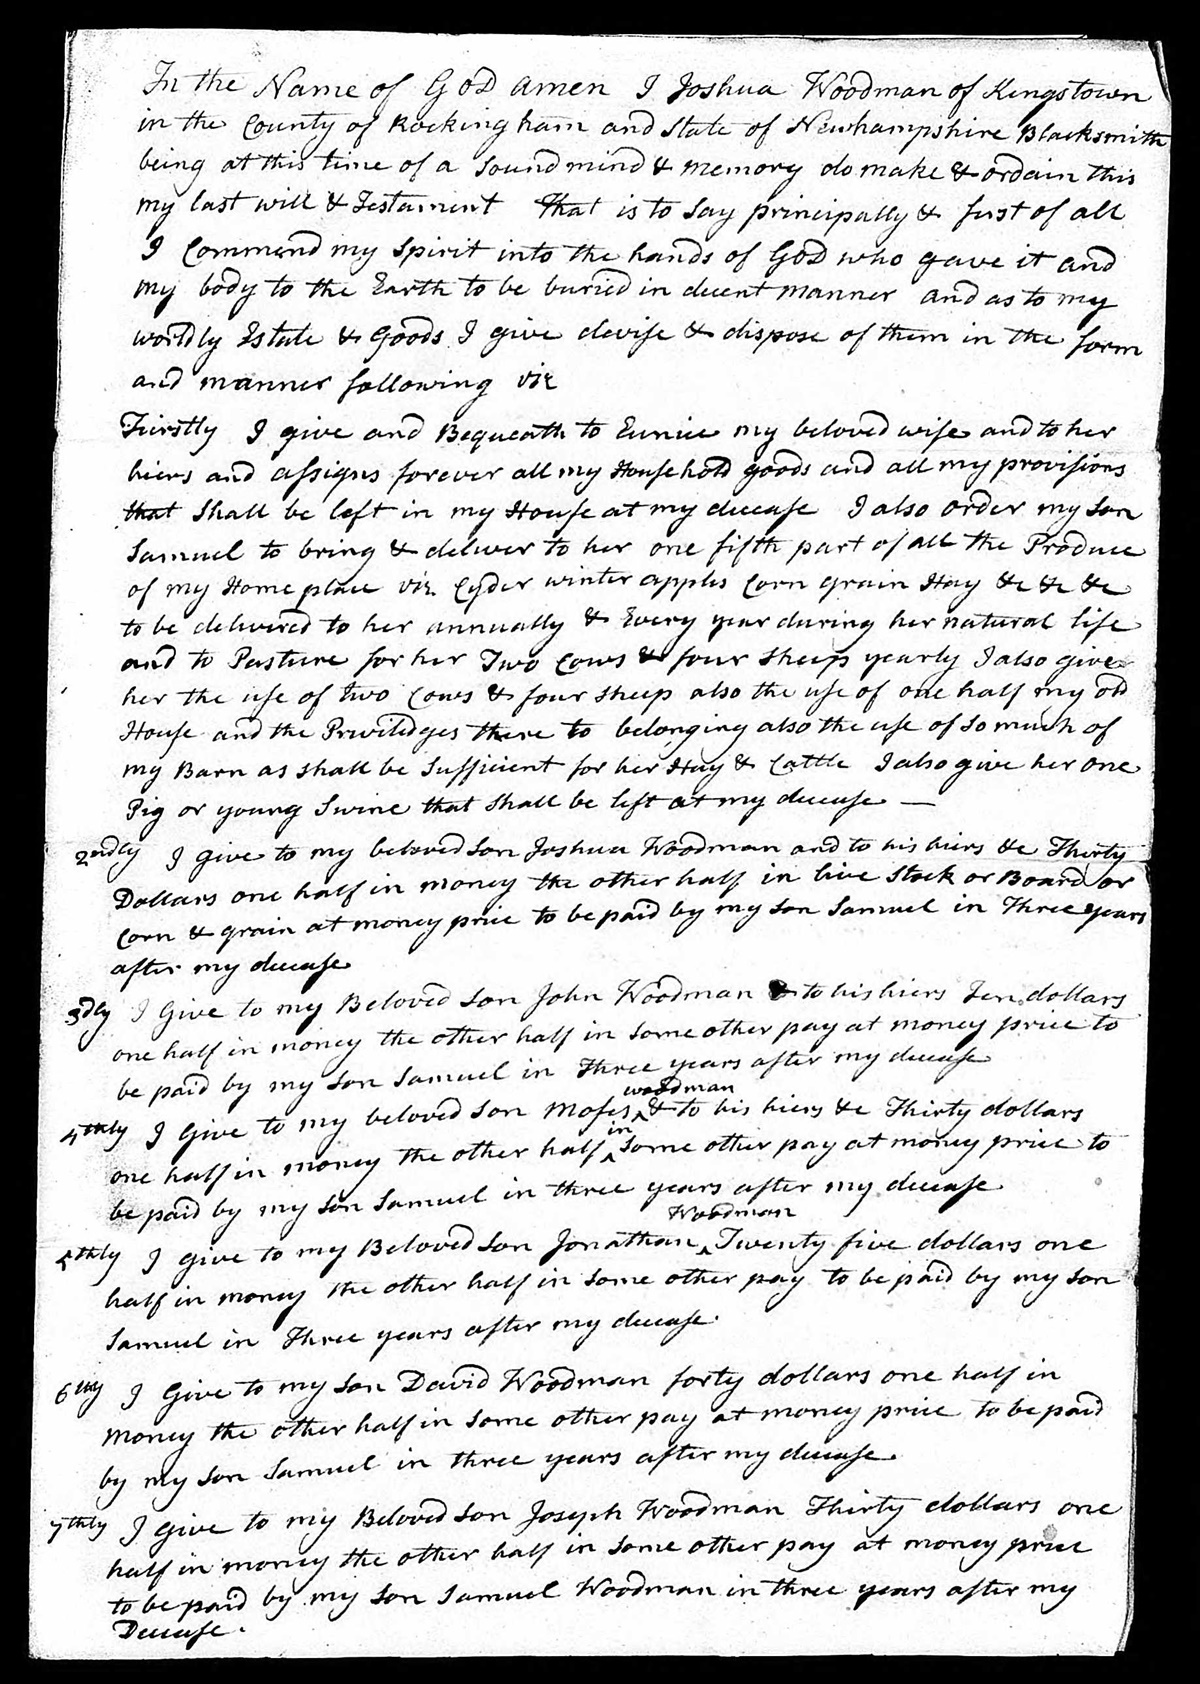 In the Name of God Amen I Joshua Woodman of Kingstown
in the County of Rockingham and State of Newhampshire Blacksmith
being at this time of a Sound mind & memory do make & ordain this
my last will & Testament That is to Say principally & first of all
I Commend my Spirit into the hands of God who gave it and
my body to the Earth to be buried in decent manner and as to my
worldly Estate & Goods I give devise & dispose of them in the form
and manner following viz
Firstly I give and Bequeath to Eunice my beloved wife and to her
hiers and assigns forever all my Household goods and all my provisions
that Shall be left in my House at my decease I also order my Son
Samuel to bring & deliver to her one fifth part of all the Produce
of my Home place viz Cyder winter apples Corn grain Hay &c &c &c
to be delivered to her annually & Every year during her natural life
and to Pasture for her Two Cows & four Sheep yearly I also give
her the use of two Cows & four Sheep also the use of one half my old
House and the Priviledges there to belonging also the use of So much of
my Barn as Shall be Sufficient for her Hay & Cattle I also give her one
Pig or young Swine that Shall be left at my decease —
2ndly I give to my beloved Son Joshua Woodman and to his hiers &c Thirty
Dollars one half in money the other half in live Stock or Board or
Corn & grain at money price to be paid by my Son Samuel in Three years
after my decease
3dly I Give to my Beloved Son John Woodman & to his hiers Ten dollars
one half in money the other half in Some other pay at money price to
be paid by my Son Samuel in Three years after my decease
woodman
4thly I Give to my beloved Son Moses ^ & to his hiers &c Thirty dollars
in
one half in money the other half ^ Some other pay at money price to
be paid by my Son Samuel in three years after my decease
Woodman
5thly I give to my Beloved Son Jonathan ^ Twenty five dollars one
half in money the other half in Some other pay to be paid by my Son
Samuel in Three years after my decease.
6thly I Give to my Son David Woodman forty dollars one half in
money the other half in Some other pay at money price to be paid
by my Son Samuel in three years after my decease.
7thly I Give to my Beloved Son Joseph Woodman Thirty dollars one
half in money the other half in Some other pay at money price
to be paid by my Son Samuel Woodman in three years after my
Decease.